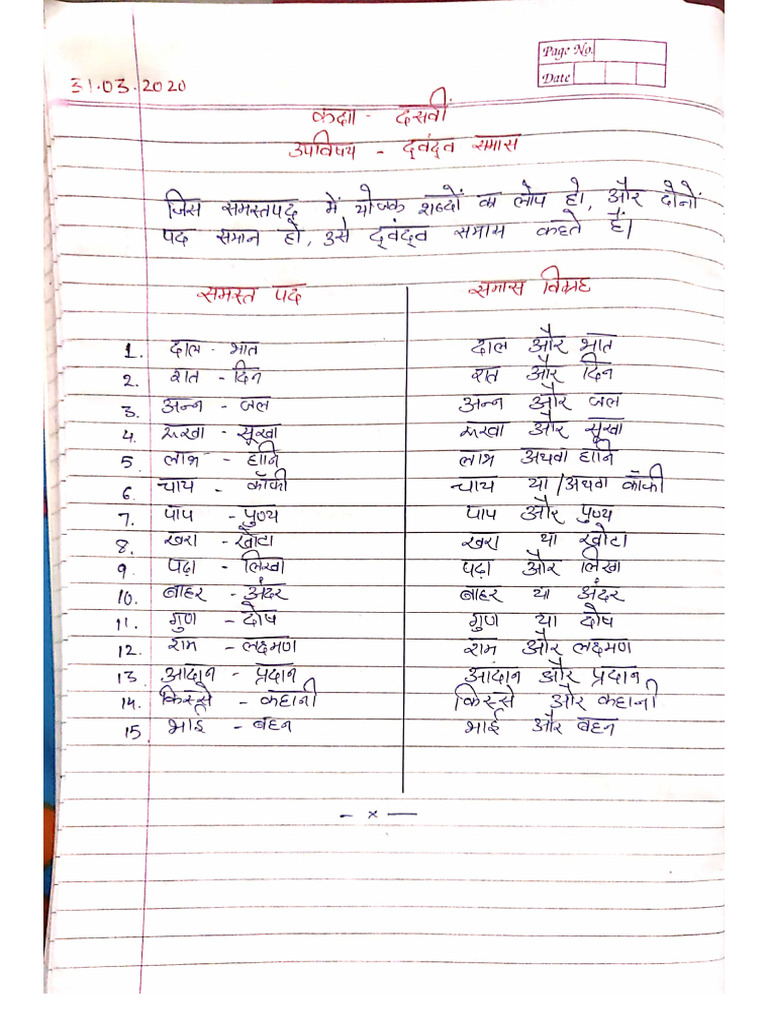 Page No.
Date
31.03.2020
कक्षा - दसवीं
उपविषय - द्वंद्व समास
जिस समस्तपद में योजक शब्दों का लोप हो, और दोनों
पद समान हो, उसे द्वंद्व समास कहते हैं।
समस्त पद समास विग्रह
1. दाल - भात दाल और भात
2. रात - दिन रात और दिन
3. अन्न - जल अन्न और जल
4. रूखा - सूखा रूखा और सूखा
5. लाभ - हानि लाभ अथवा हानि
6. चाय - कॉफी चाय या/अथवा कॉफी
7. पाप - पुण्य पाप और पुण्य
8. खरा - खोटा खरा या खोटा
9. पढ़ा - लिखा पढ़ा और लिखा
10. बाहर - अंदर बाहर या अंदर
11. गुण - दोष गुण या दोष
12. राम - लक्ष्मण राम और लक्ष्मण
13. आदान - प्रदान आदान और प्रदान
14. किस्से - कहानी किस्से और कहानी
15 भाई - बहन भाई और बहन
- x -